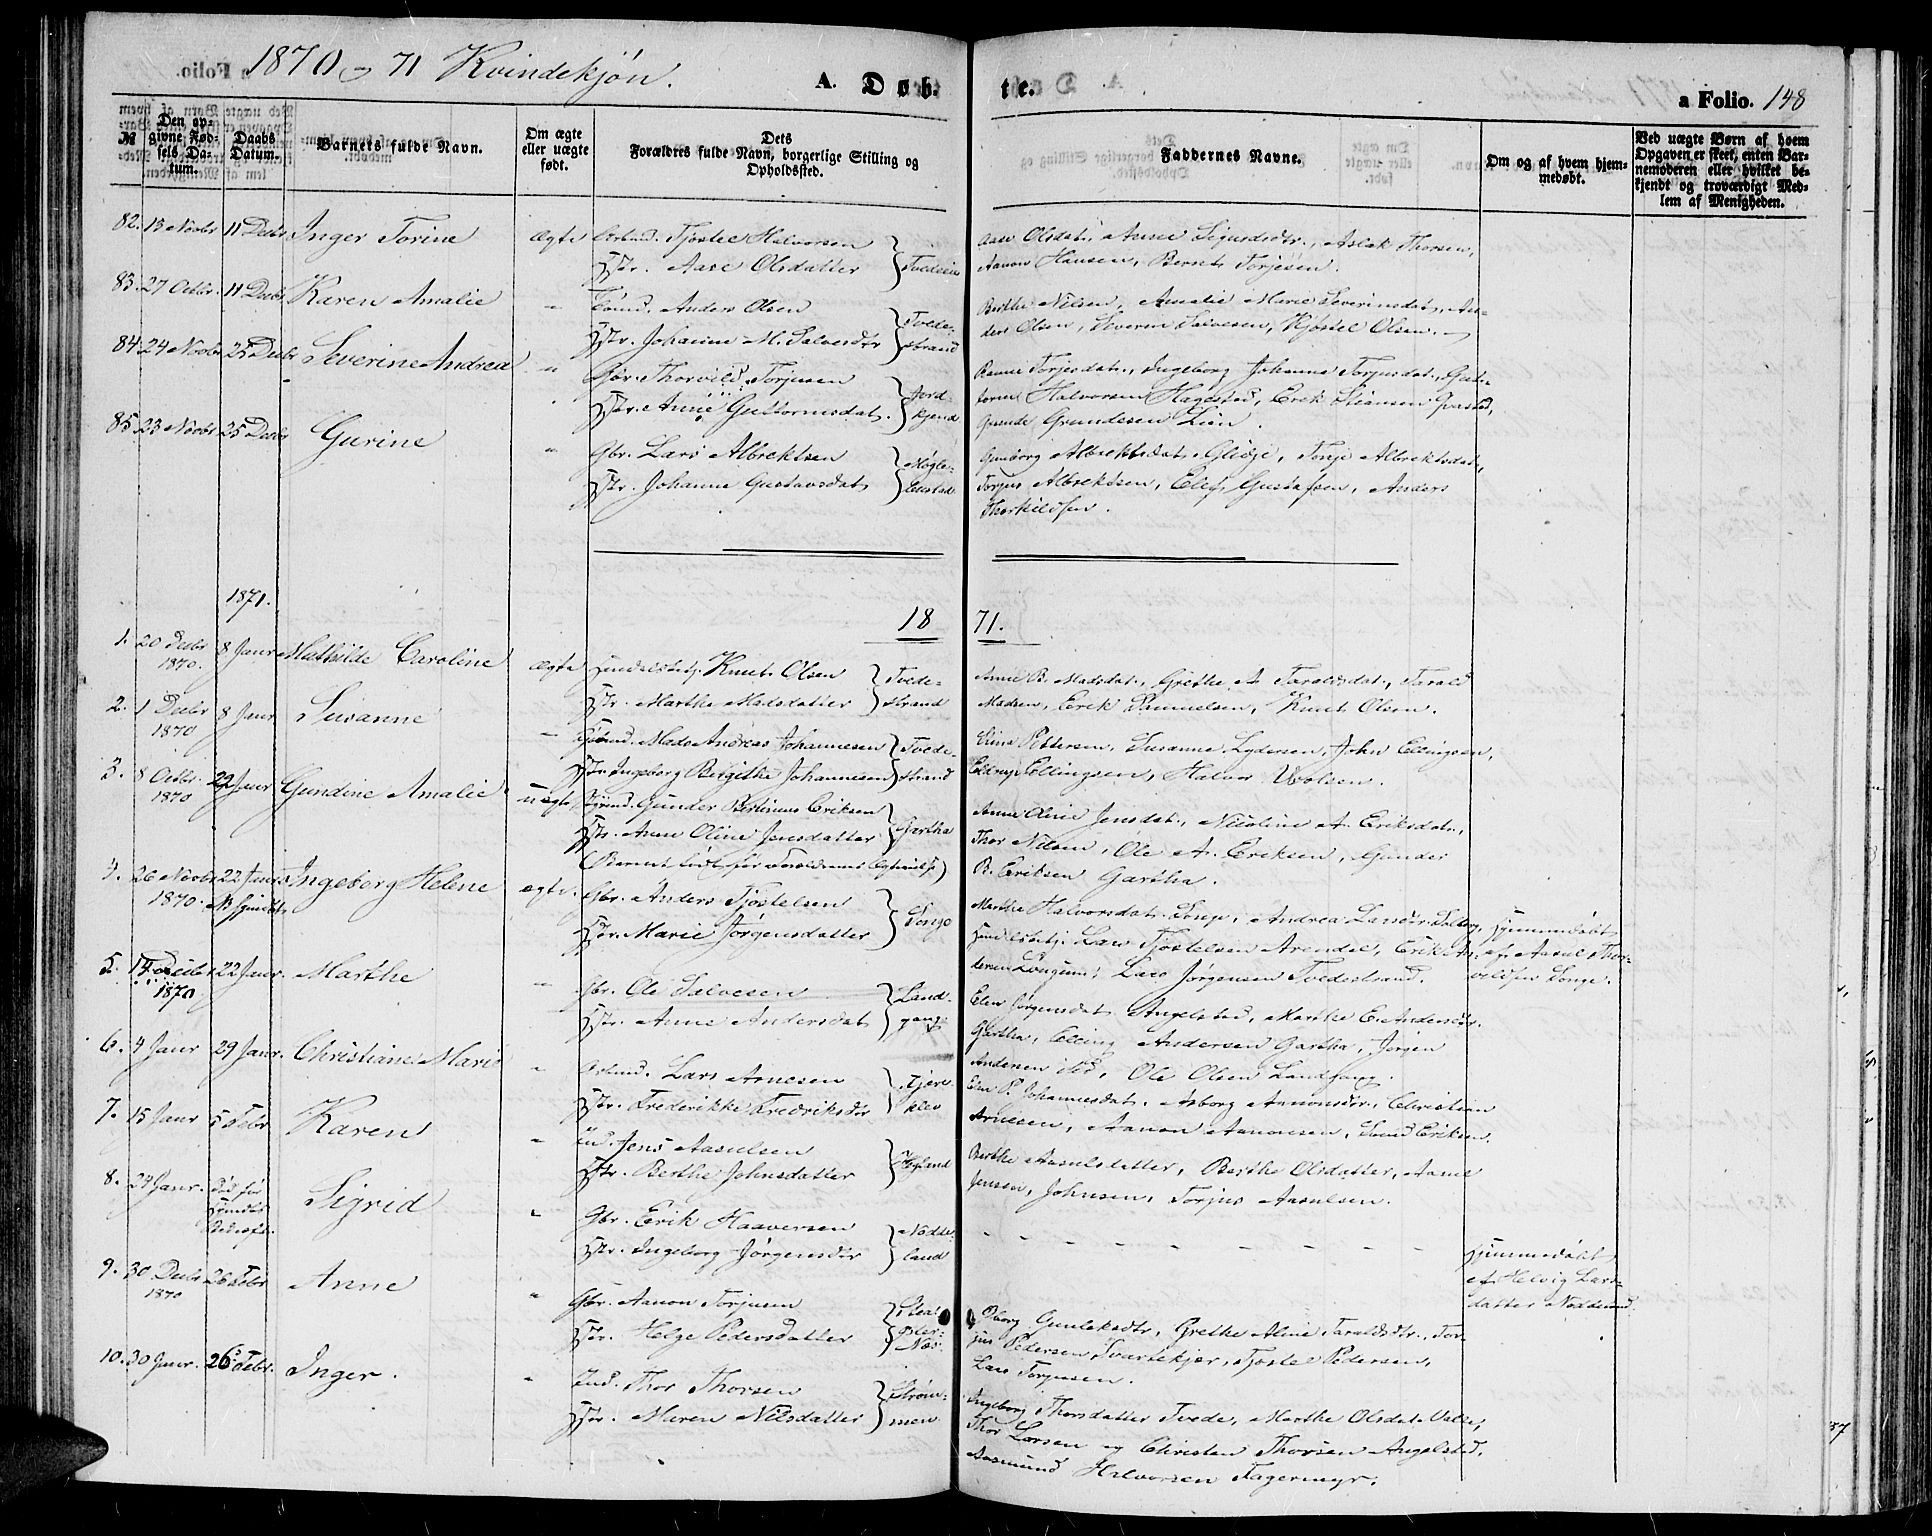 1870 og 71 Kvindekjön.
A. Døb-
te.
a Folio. 148
№
Den op-
givne Fød-
sels Da-
tum.
Daabs
Datum.
Barnets fulde Navn.
Om ægte
eller uægte
født.
Dets
Forældres fulde Navn, borgerlige Stilling og
Opholdssted.
Faddernes Navne.
Om og af hvem hjem-
medøbt.
Ved uægte Børn af hvem
Opgaven er skeet, enten Bar-
nemoderen eller hvilket be-
kjendt og troværdigt Med-
lem af Menigheden.
82. 13 Novbr 11 Decbr Inger Torine ægte Tjöstel Halvorsen
Hstr. Aase Olsdatter
Aase Olsdat., Anne Sigurdsdtr., Aslak Thorsen,
Aanon Hansen, Bernt Torjesen.
83. 27 Octbr. 11 Decbr Karen Amalie " Anders Olsen
Hstr. Johanne M. Salvesdtr Tvede-
strand
Berthe Nilsen, Amalie Marie Severinsdat., An-
ders Olsen, Severin Salvesen, Kjöstel Olsen.
84. 24 Novbr 25 Decbr Severine Andrea " Gbr. Thorvild Torjusen
Hstr. Anne Guttormsdat.
Torjesdat., Ingeborg Johanne Torjusdat., Gut-
torm Halvorsen Hagestad, Erik
Grundesen Lien.
85. 23 Novbr 25 Decbr Gurine " Gbr. Lars Albrektsen
Hstr. Johanne Gustavsdat.
Gunborg Albrektsdat. Tonje Albrektsdat.,
Torjus Albrektsen, Elef Gustafsen, Anders
Thorkildsen.
1871.
18
71.
1. 20 Decbr
1870. 8 Janr Mathilde Caroline ægte Handelsbetj. Knut Olsen
Hstr. Marthe Madsdatter Tvede-
strand
Anne B. Madsdat., Grethe A. Taraldsdat., Tarald
Madsen, Erik Samuelsen, Knut Olsen.
2. 1 Decbr
1870 8 Janr Susanne " Mads Andreas Johannesen
Hstr. Ingeborg Birgithe Johannesen Tvede-
strand
Petersen, Susanne Lydersen, John Ellingsen,
Ellingsen, Halvor Wolsen.
3. 8 Octbr.
1870 22 Janr Gundine Amalie uægte Gunder Bertinius Eriksen
Hstr. Anne Oline Jensdatter Gartha
(Barnet födt för Forældrenes Ægteskab)
Anne Oline Jensdat., Nicoline A. Eriksdat.,
Thor Nilsen, Ole A. Eriksen, Gunder
B. Eriksen Gartha.
4. 26 Novbr
1870. 22 Janr Ingeborg Helene ægte. Gbr. Anders Tjöstelsen
Hstr. Marie Jörgensdatter Songe
Marthe Halvorsdat. Songe, Andrea
Handelsbetj. Lars Tjöstelsen Arendal, Erik An-
dersen Lars Jörgensen Tvedestrand.
Hjemmedöbt
af Aasul Thor-
vildsen Songe.
5. 14 Decbr
1870 22 Janr. Marthe " Gbr. Ole Salvesen
Hstr. Anne Andersdat. Land-
gang
Elen Jörgensdat. Angelstad, Marthe E. Andersdtr.
Gartha, Elling Andersen Gartha, Jörgen
Andersen ibd., Ole Olsen Landgang.
6. 4 Janr 29 Janr. Christiane Marie " Lars Arnesen
Hstr. Frederikke Fredriksdtr
Elen P. Johannesdat. Asborg Aanonsdtr., Christian
Arnesen, Aanon Aanonsen, Eriksen.
7. 15 Janr 5 Febr Karen " Ind. Jens Aasulsen
Hstr. Berthe Johnsdatter
Berthe Aasulsdatter, Berthe Olsdatter, Aanne
Jensen, Johnsen, Torjus Aasulsen.
8. 27 Janr. Död för
Sigrid " Gbr. Erik Haaversen
Hstr. Ingeborg Jörgensdtr Nodde-
land
Hjemmedöbt
af Helvig Lars-
datter Noddeland.
9. 30 Decbr
1870 26 Febr Anne " Gbr. Aanon Torjusen
Hstr. Helge Pedersdatter
Gunleksdtr, Grethe Aline Taraldsdtr., Tor-
jus Pedersen Svartekjær, Tjöstel Pedersen,
Lars Torjusen.
10. 30 Janr. 26 Febr. Inger. " Ind. Thor Thorsen
Hstr. Maren Nilsdatter Ström-
men
Ingeborg Thorsdatter Tvede, Marthe Olsdat. Valle,
Thor Larsen og Christen Thorsen Angelstad,
Aasmund Halvorsen Fagermyr.